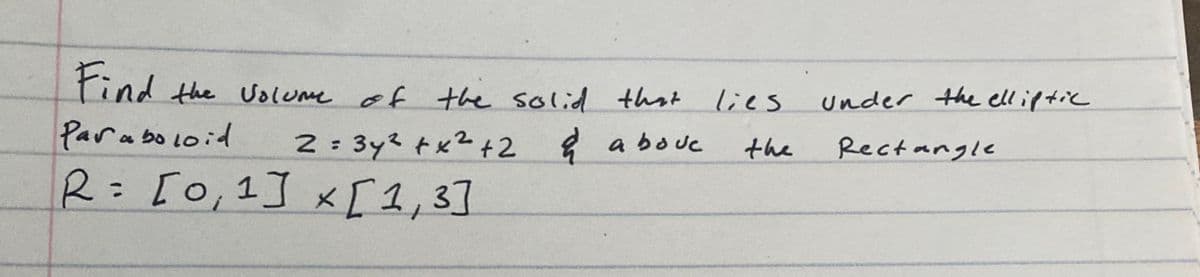 Find the Volume of the solid that lies under the elliptic
Paraboloid z = 3y² + x² + 2 & above the Rectangle
R = [0,1] × [1,3]